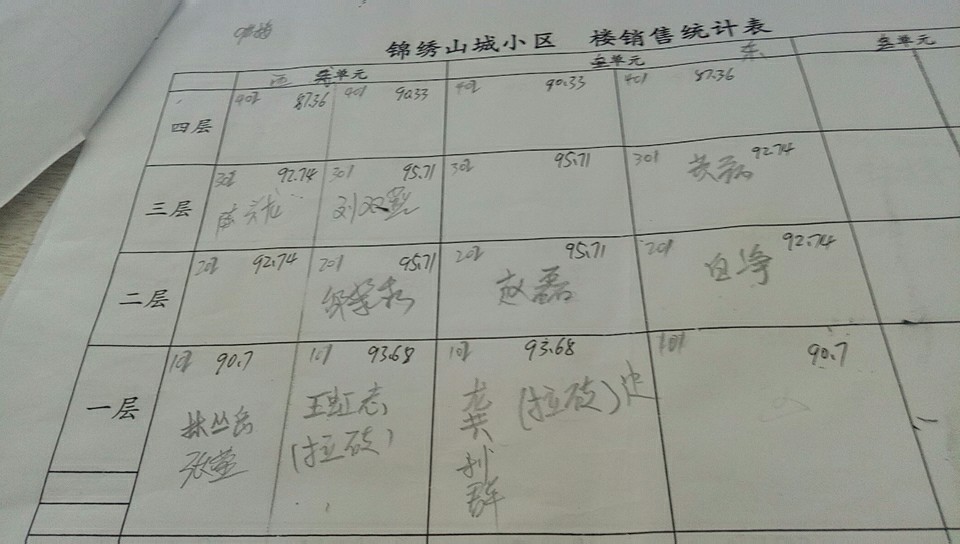 9#楼
锦绣山城小区 楼销售统计表
西 单元 叁单元 东 叁单元
四层 402 87.36 401 90.33 402 90.33 401 87.36
三层 302 92.74 301 95.71 302 95.71 301 92.74
刘双
二层 202 92.74 201 95.71 202 95.71 201 92.74
赵磊 白净
一层 102 90.7 101 93.68 102 93.68 101 90.7
林丛岳 王虹志 龚利群 (拉砖)
张莹 (拉砖)